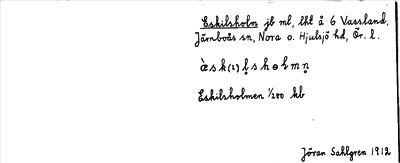 Eskilsholm jb ml, lht å 6 Vassland,
Järnboås sn, Nora o. Hjulsjö hd, Ör. l.
Eskilsholmen 1/200 kb
Jöran Sahlgren 1912